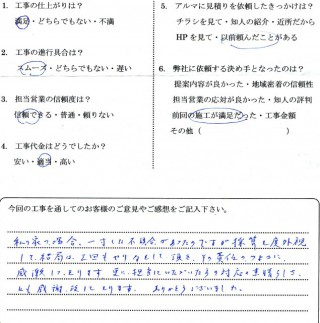 1. 工事の仕上がりは？
満足・どちらでもない・不満
2. 工事の進行具合は？
スムーズ・どちらでもない・遅い
3. 担当営業の信頼度は？
信頼できる・普通・頼りない
4. 工事代金はどうでしたか？
安い・適当・高い
5. アルマに見積りを依頼したきっかけは？
チラシを見て・知人の紹介・近所だから
HPを見て・以前頼んだことがある
6. 弊社に依頼する決め手となったのは？
提案内容が良かった・地域密着の信頼性
担当営業の応対が良かった・知人の評判
前回の施工が満足だった・工事金額
その他（　　　）
今回の工事を通してのお客様のご意見やご感想をご記入下さい。
私の家の場合、一寸した不具合があったのですが採算を度外視
して、結局は2回もやりなおして頂き、その責任のつよさに
感謝しております。更に、担当していただいた方の対応の素晴らしさ
にも感謝致しております。ありがとうございました。